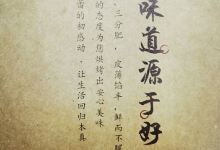 味道源于好
三分肥，皮薄馅丰，鲜而不腻
的态度为您烘烤出安心美味
旨的初感动，让生活回归本真